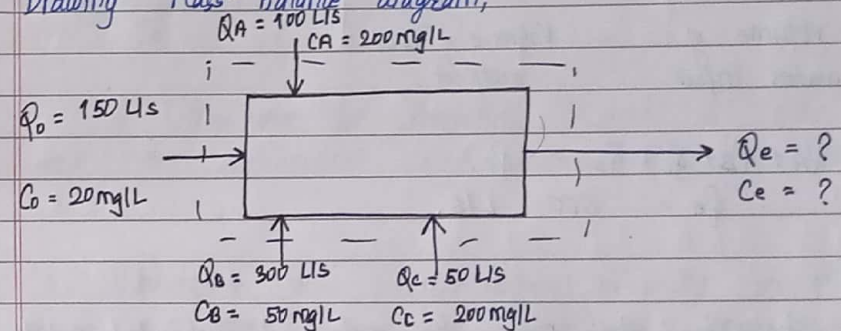 Drawing Mass balance diagram,
QA = 100 L/s
CA = 200 mg/L
Q0 = 150 L/s
C0 = 20 mg/L
Qe = ?
Ce = ?
QB = 300 L/s QC = 50 L/s
CB = 50 mg/L CC = 200 mg/L